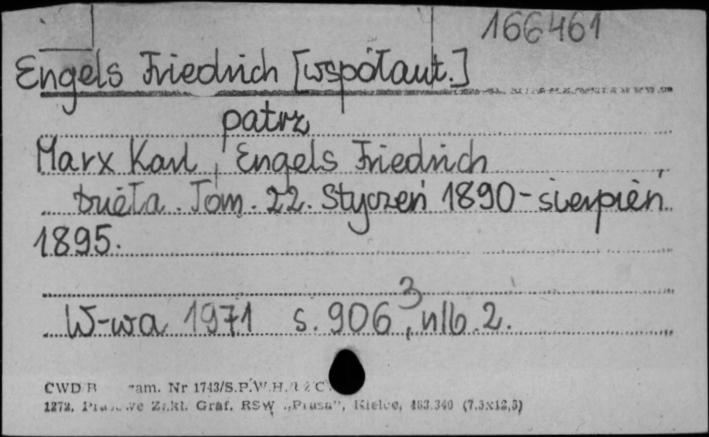 166461
Engels Friedrich [współaut.]
patrz
Marx Karl, Engels Friedrich
Dzieła. Tom. 22. Styczeń 1890-sierpień
1895.
W-wa 1971 s. 906, 3 nlb. 2.
CWD Nr 1743/S.P.W.H.
1272. Zakł. Graf. RSW „Prasa", Kielce, (7.5x12,5)